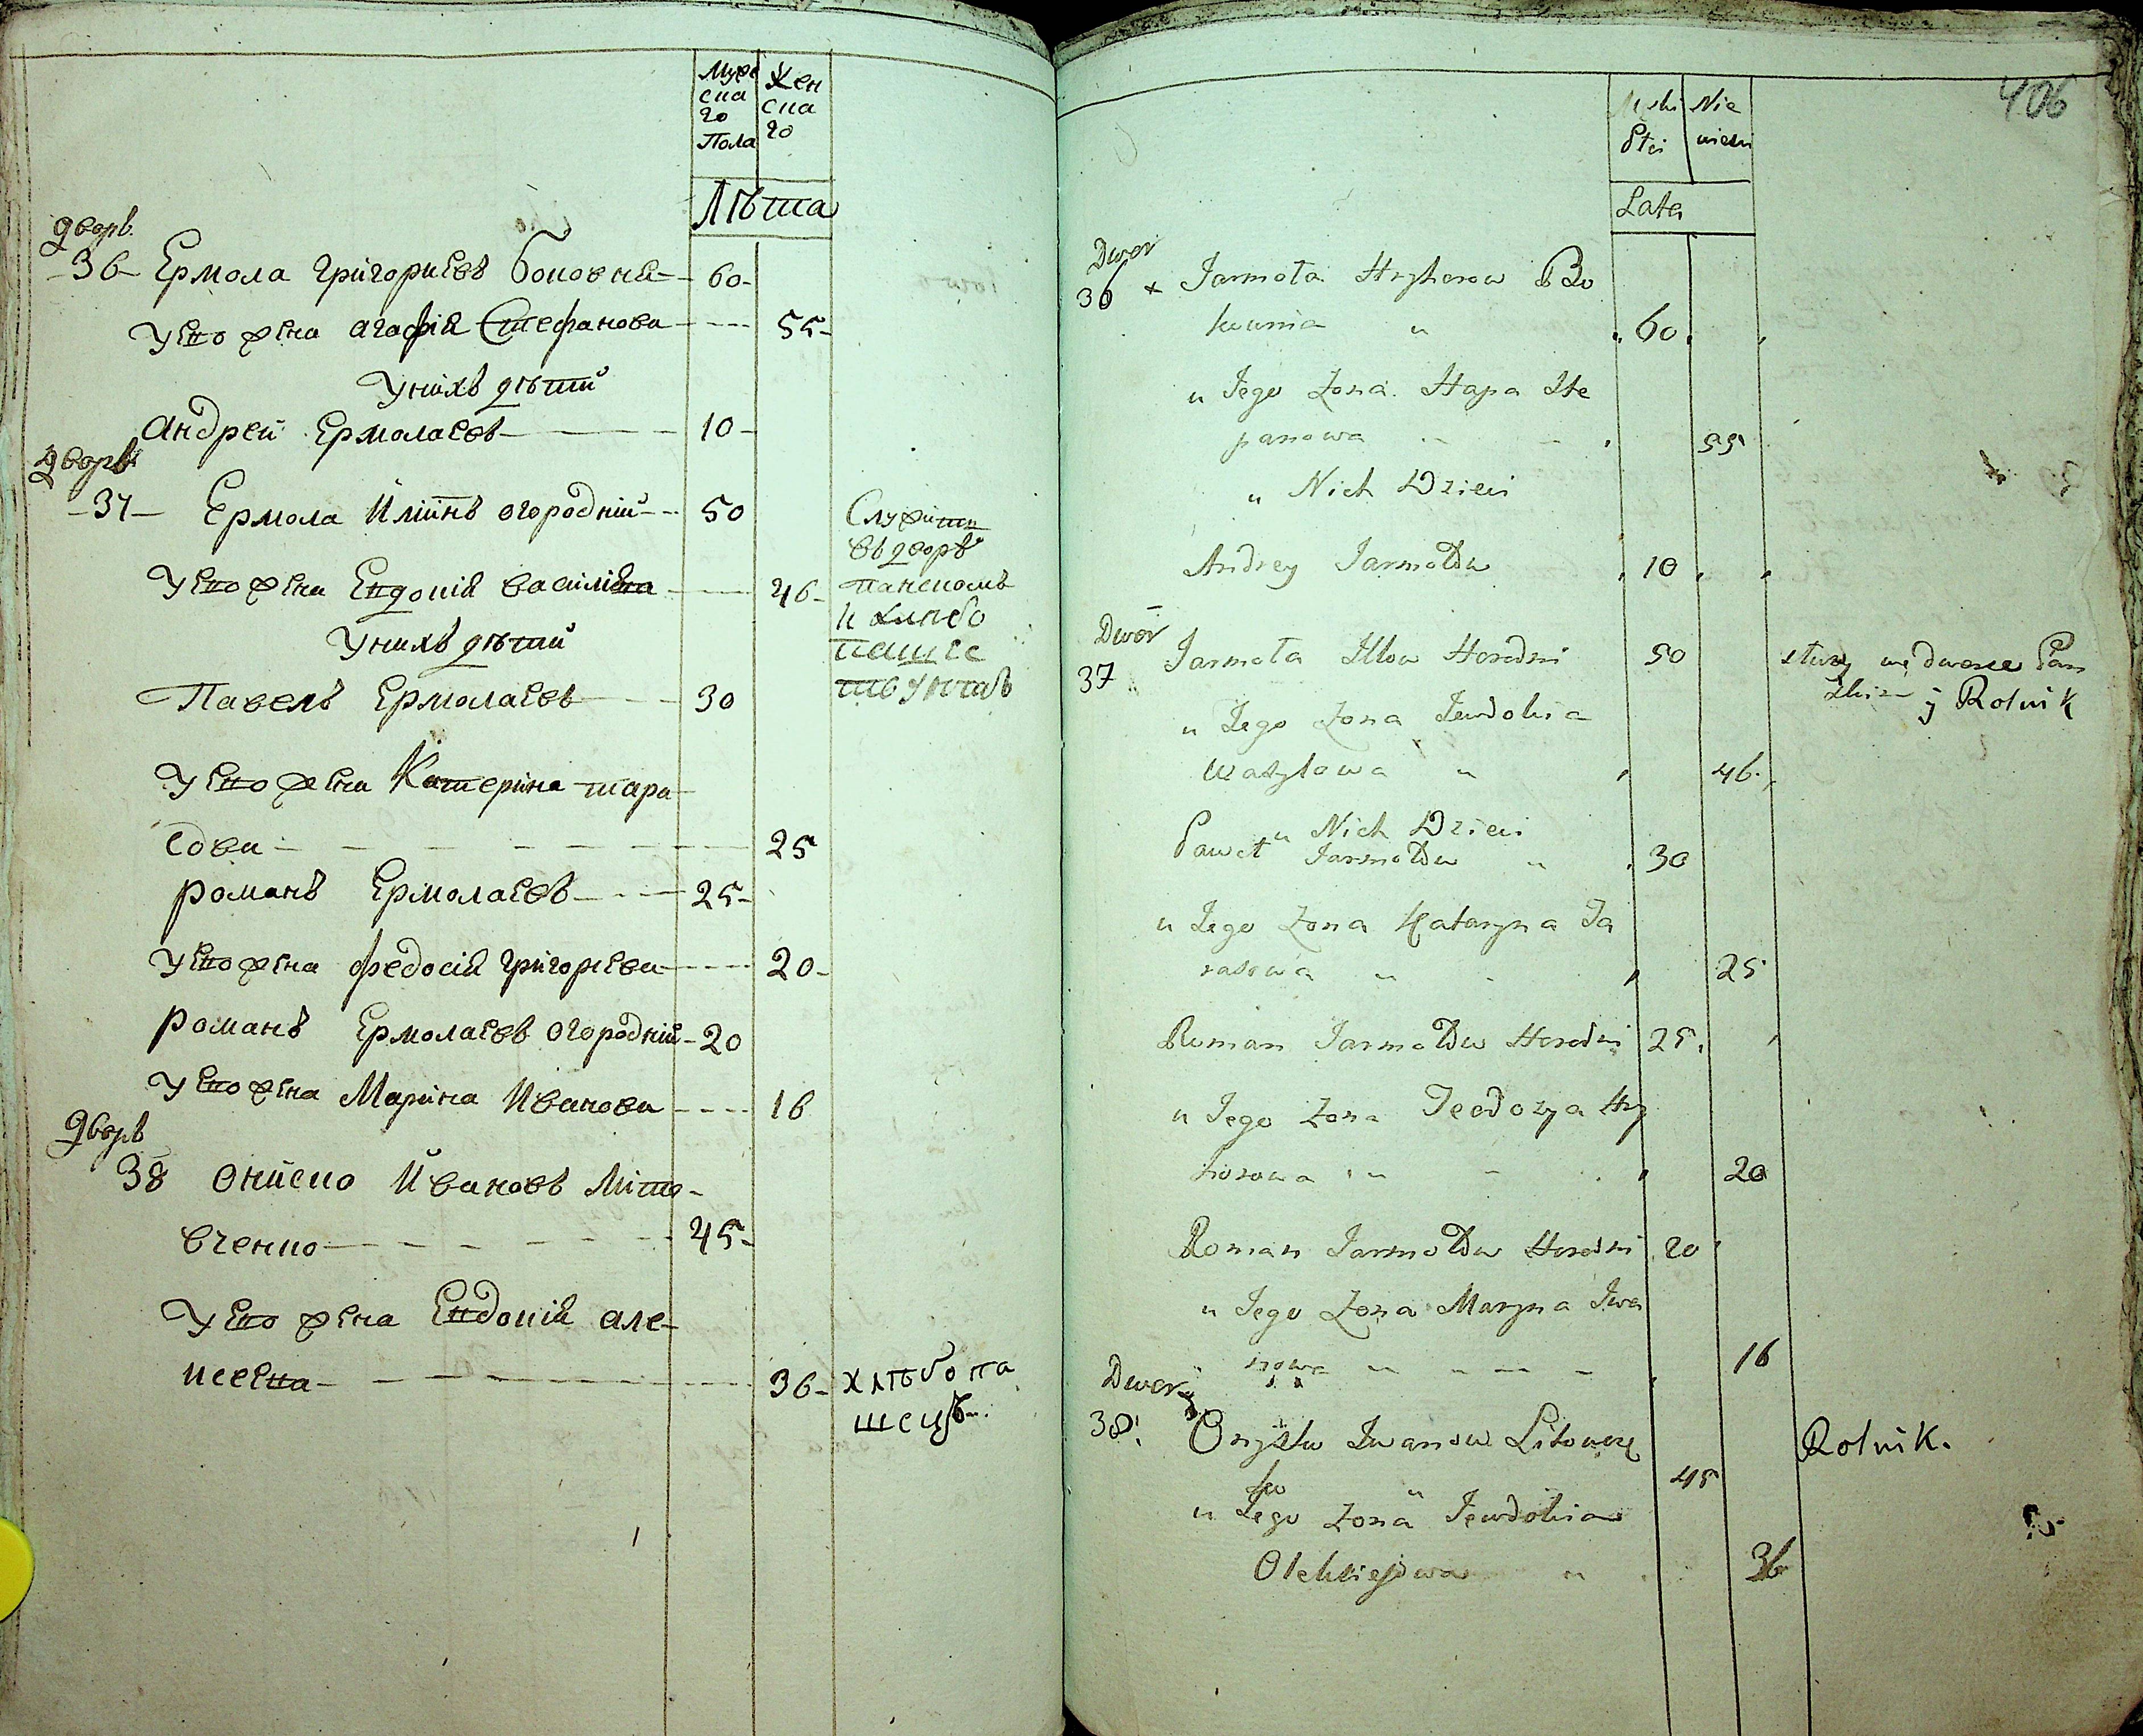 Муже Жен
ска ска
го го
Пола
Лѣта
дворъ
36 Ермола григориевъ боковня 60
у его жена агафія Стефанова 55
у нихъ дѣти
андрей Ермолаевъ 10
дворъ
37 Ермола Илинъ огородній 50 Служитъ
въ дворѣ
у его жена Евдокія василівна 46 панскомъ
и хлѣбо
у нихъ дѣти пашe
ствуетъ
Павелъ Ермолаевъ 30
у его жена Катерина тара
сова 25
романъ Ермолаевъ 25
у его жена федосія григориева 20
романъ Ермолаевъ огородній 20
у его жена Марина Иванова 16
дворъ
38 Ониско Ивановъ Лито
вченко 45
у его жена Евдокія але
ксеевна 36 хлѣбопа
шецъ
406
Męski Nie
Płci wiesci
Lata
Dwor
36 Jarmoła Hryhorow Bo
kownia " 60
u Jego Zona Hapa Ste
panowa 55
u Nich Dzieci
Andrey Jarmołow 10
Dwor
37 Jarmoła Illow Horodni 50 służy we dworze Pan
skim y Rolnik
u Jego Zona Jewdokia
Wasylowa " 46
u Nich Dzieci
Paweł Jarmołow " 30
u Jego Zona Kataryna Ta
rasowa " 25
Roman Jarmołow Horodni 25
u Jego Zona Teodozya Hry
horowa " 20
Roman Jarmołow Horodni 20
u Jego Zona Maryna Iwa
nowa 16
Dwor
38 Onysko Iwanow Litowcze Rolnik.
ko " 45
u Jego Zona Jewdokia
Oleksiejowa " 36